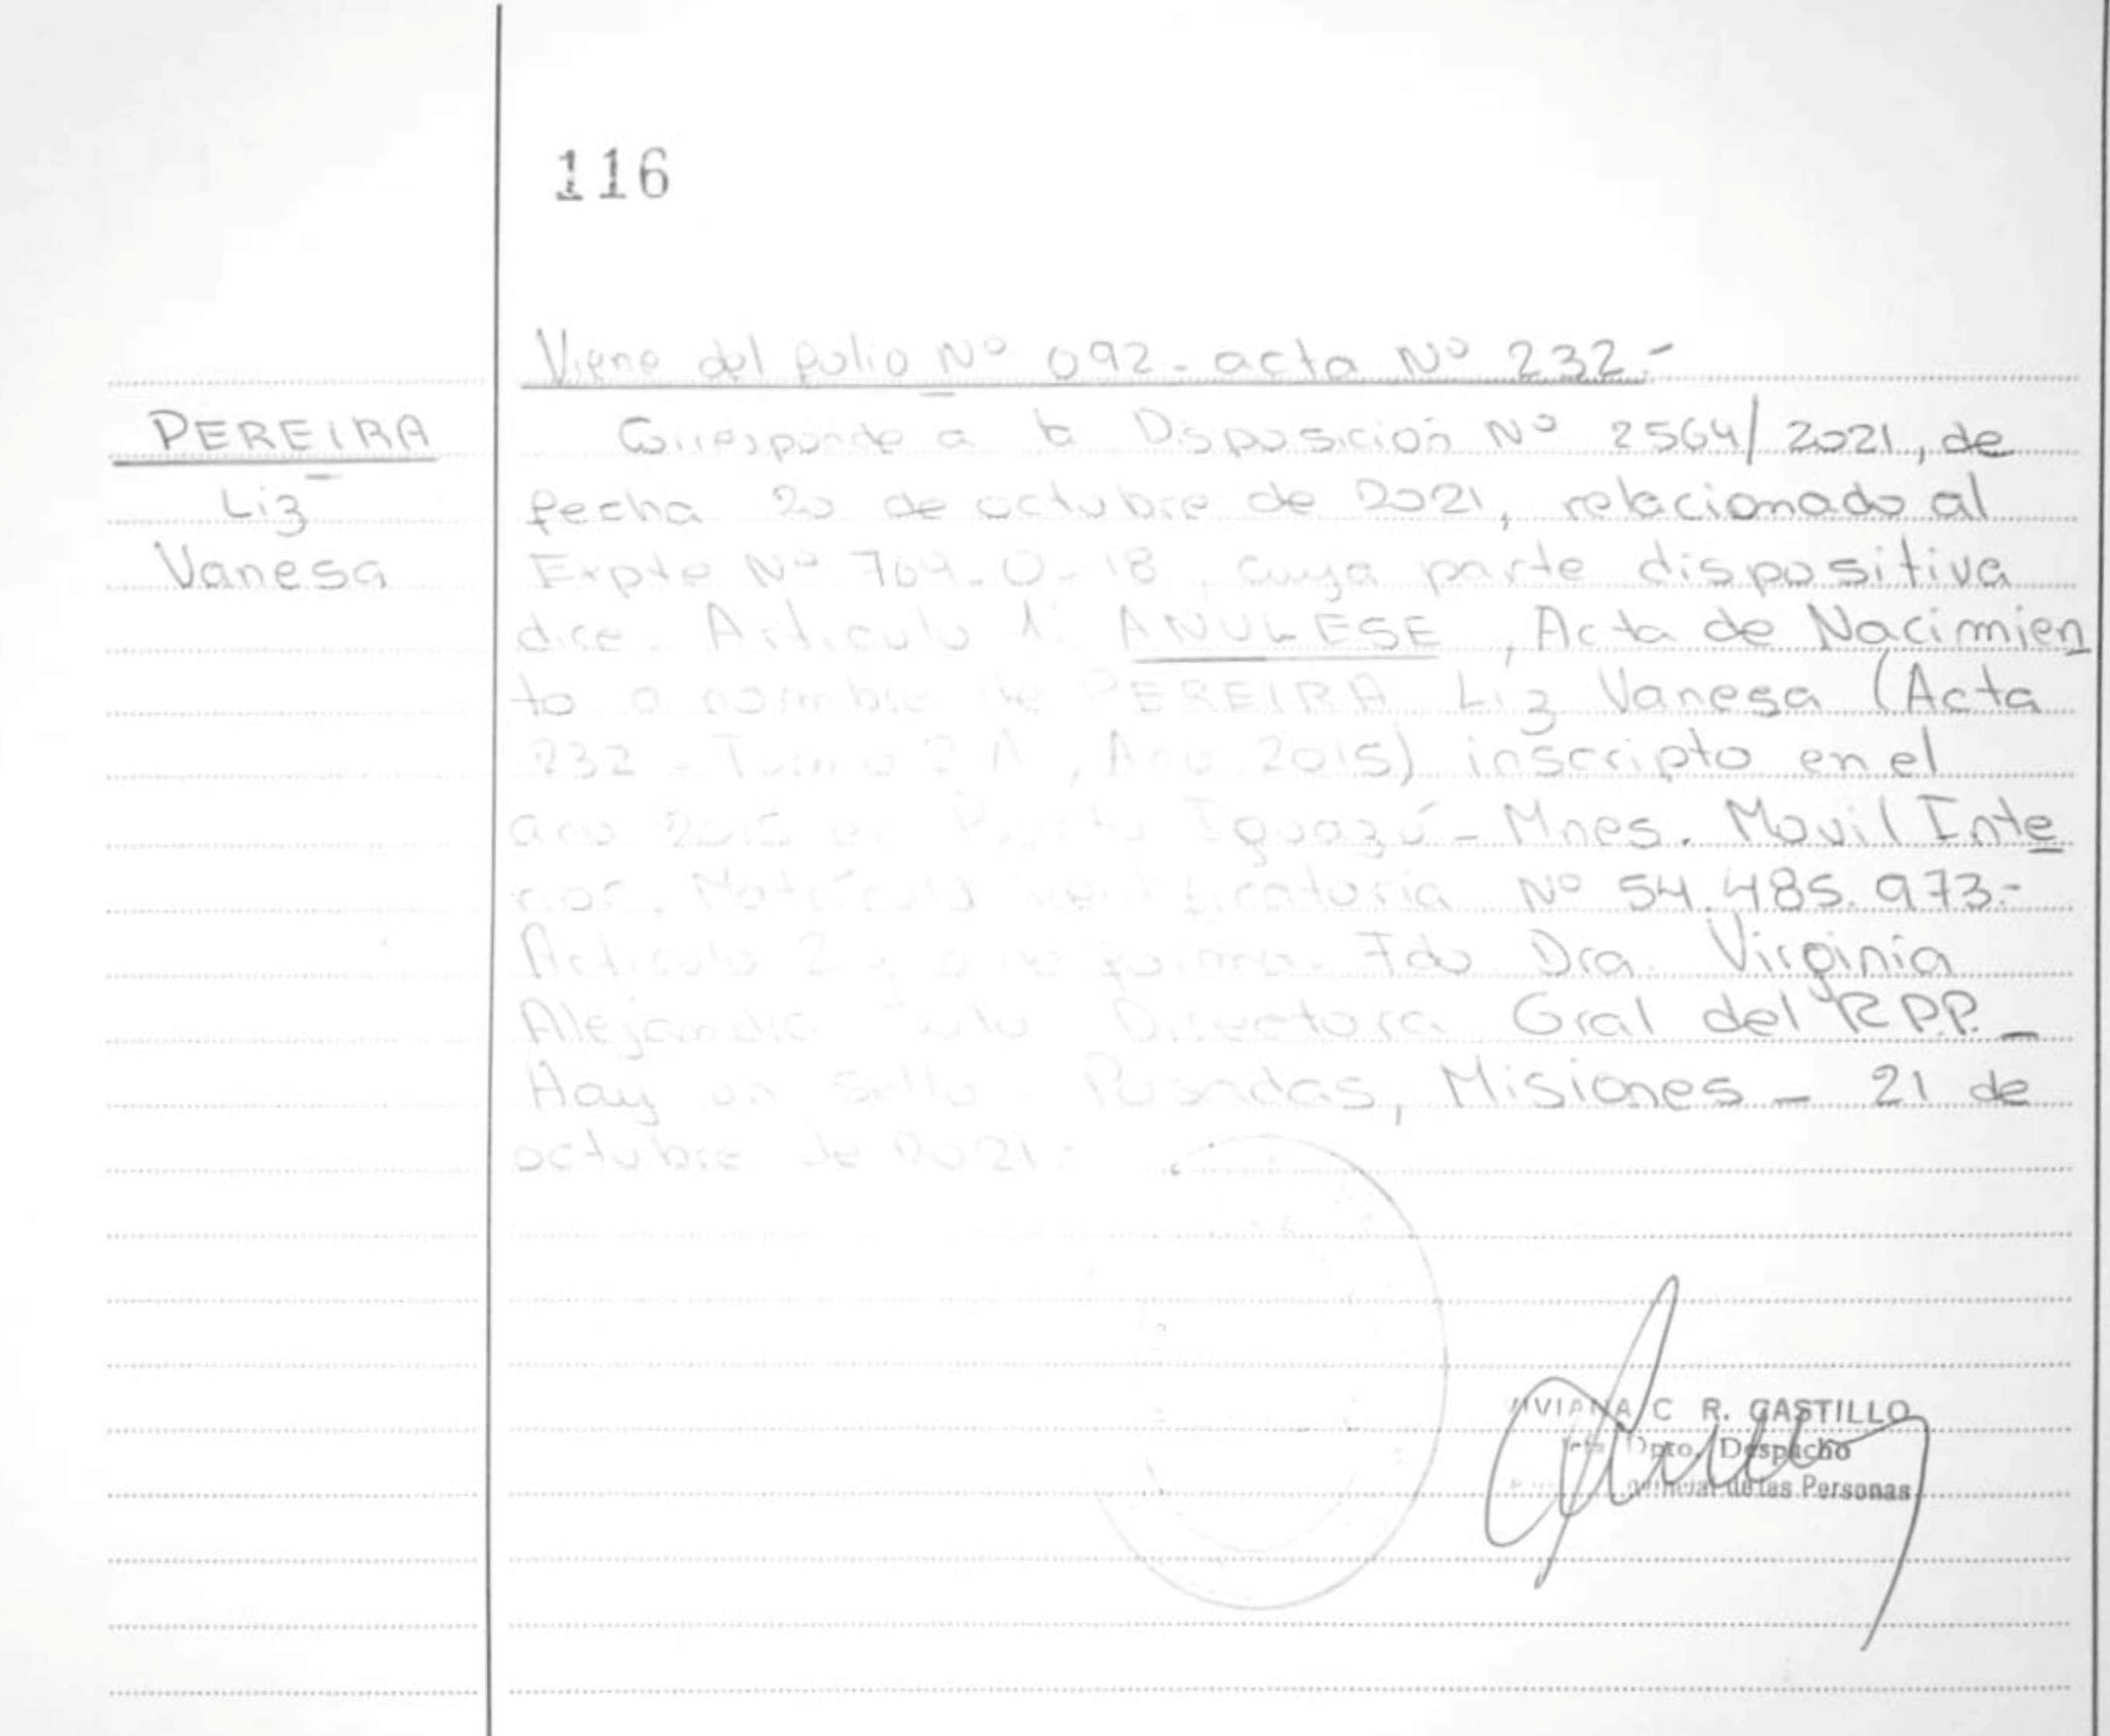 116
Viene del folio Nº 092 - acta Nº 232.-
PEREIRA
Liz
Vanesa
Corresponde a la Disposición Nº 2564/2021, de
fecha 20 de octubre de 2021, relacionado al
Expte Nº 769-O-18, cuya parte dispositiva
dice. Articulo 1: ANULESE, Acta de Nacimien
to a nombre de PEREIRA Liz Vanesa (Acta
232 - Tomo 2 A, Año 2015) inscripto en el
año 2015 en Puerto Iguazú - Mnes. Movil Inte
rior. Matrícula Nº 54.485.973.-
Articulo 2 Fdo Dra. Virginia
Alejandra Directora Gral del R.P.P. -
Hay un sello - Posadas, Misiones - 21 de
octubre de 2021.-
VIVIANA C R. CASTILLO
Jefa Dpto. Despacho
de las Personas